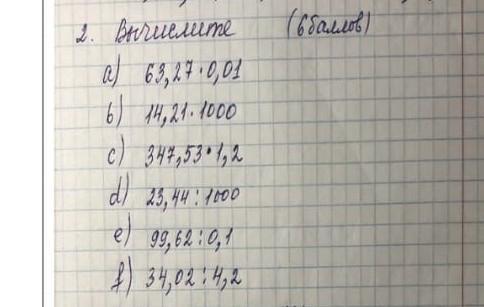 2. Вычислите (6 баллов)
a) 63,27·0,01
b) 14,21·1000
c) 347,53·1,2
d) 23,44:1000
e) 99,62:0,1
f) 34,02:4,2